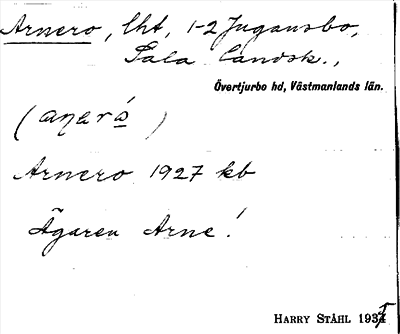 Arnero, lht, 1-2 Jugansbo,
Sala landsk.,
Övertjurbo hd, Västmanlands län.
Arnero 1927 kb
Ägaren Arne!
HARRY STÅHL 1935